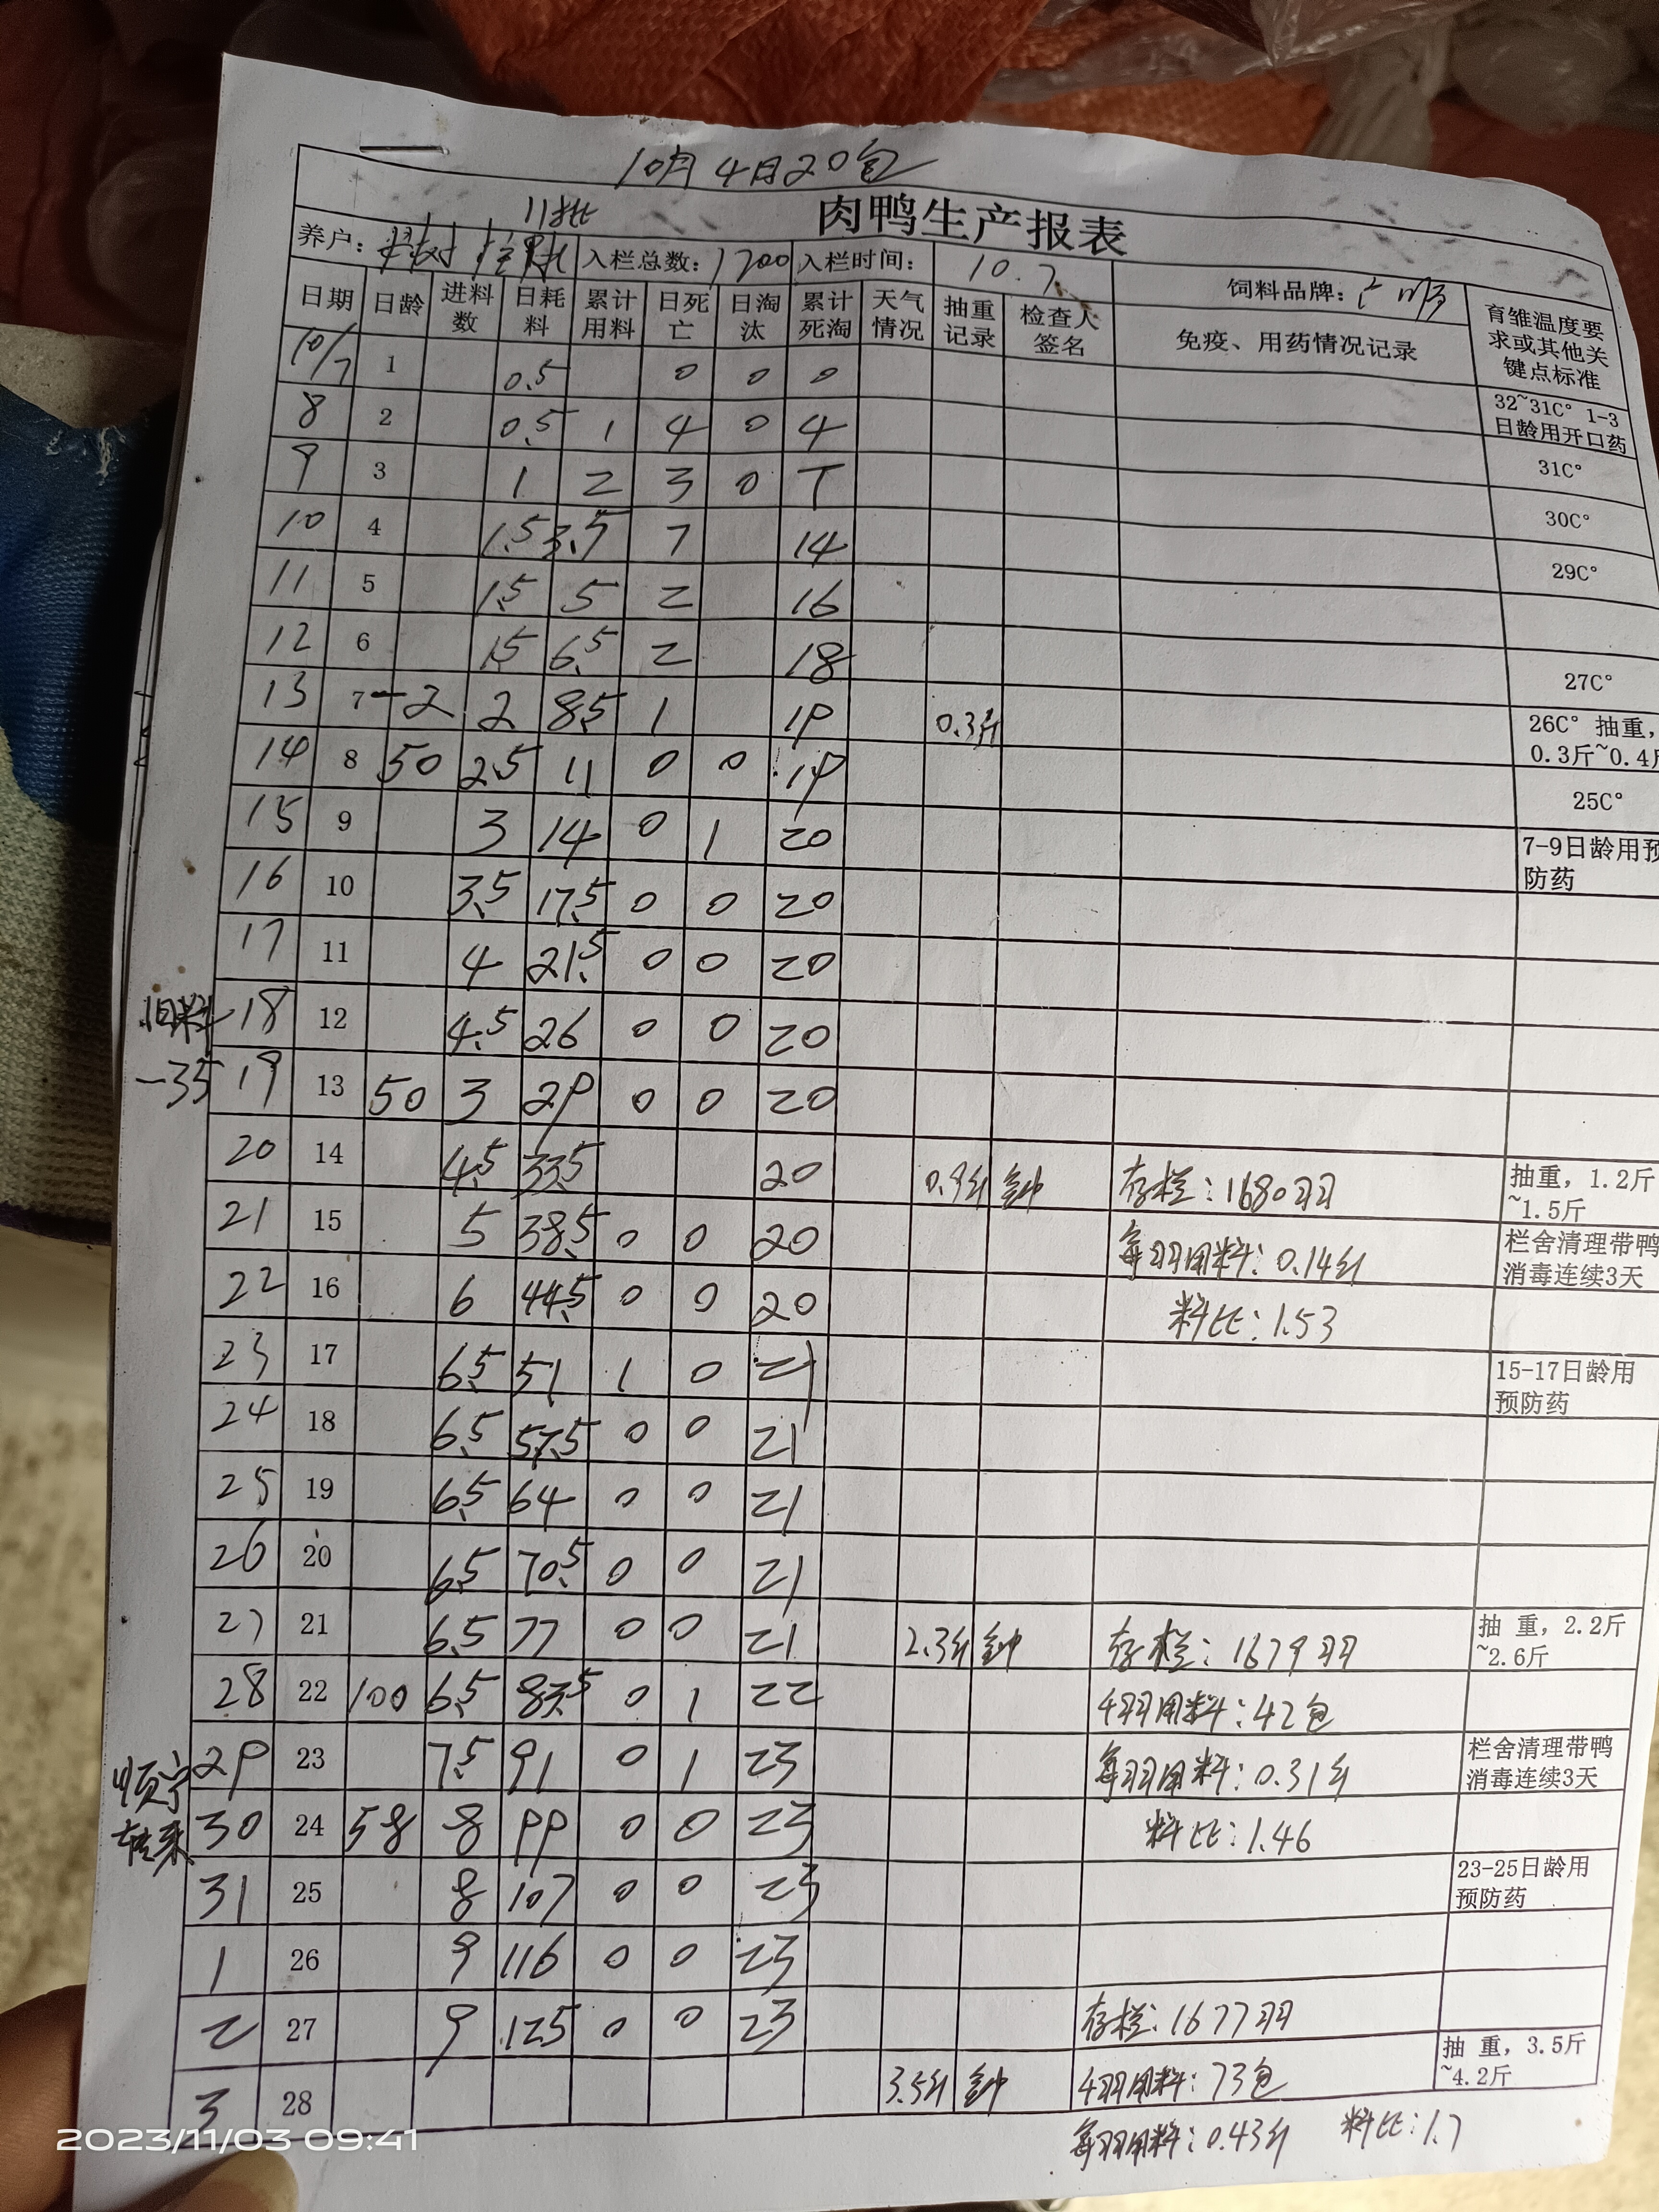 10月4日20包
11批
肉鸭生产报表
养户： 入栏总数：1700 入栏时间：10.7 饲料品牌：
日期 日龄 进料数 日耗料 累计用料 日死亡 日淘汰 累计死淘 天气情况 抽重记录 检查人签名 免疫、用药情况记录 育雏温度要求或其他关键点标准
10/7 1 0.5 0 0 0 32~31C° 1-3日龄用开口药
8 2 0.5 1 4 0 4 31C°
9 3 1 2 3 0 7 30C°
10 4 1.5 3.5 7 14 29C°
11 5 1.5 5 2 16
12 6 1.5 6.5 2 18 27C°
13 7 -2 2 8.5 1 19 0.3斤 26C° 抽重，0.3斤~0.4斤
14 8 50 2.5 11 0 0 19 25C°
15 9 3 14 0 1 20 7-9日龄用预防药
16 10 3.5 17.5 0 0 20
17 11 4 21.5 0 0 20
旧料 18 12 4.5 26 0 0 20
-35 19 13 50 3 29 0 0 20
20 14 4.5 33.5 20 0.9斤 钟 存栏：1680羽 抽重，1.2斤~1.5斤
21 15 5 38.5 0 0 20 每羽用料：0.14斤 栏舍清理带鸭消毒连续3天
22 16 6 44.5 0 0 20 料比：1.53
23 17 6.5 51 1 0 21 15-17日龄用预防药
24 18 6.5 57.5 0 0 21
25 19 6.5 64 0 0 21
26 20 6.5 70.5 0 0 21
27 21 6.5 77 0 0 21 2.3斤 钟 存栏：1679羽 抽 重，2.2斤~2.6斤
28 22 100 6.5 83.5 0 1 22 4羽用料：42包
29 23 7.5 91 0 1 23 每羽用料：0.31斤 栏舍清理带鸭消毒连续3天
顺宁转来 30 24 58 8 99 0 0 23 料比：1.46
31 25 8 107 0 0 23 23-25日龄用预防药
1 26 9 116 0 0 23
2 27 9 125 0 0 23 存栏：1677羽
3 28 3.5斤 钟 4羽用料：73包 抽 重，3.5斤~4.2斤
每羽用料：0.43斤 料比：1.7
2023/11/03 09:41